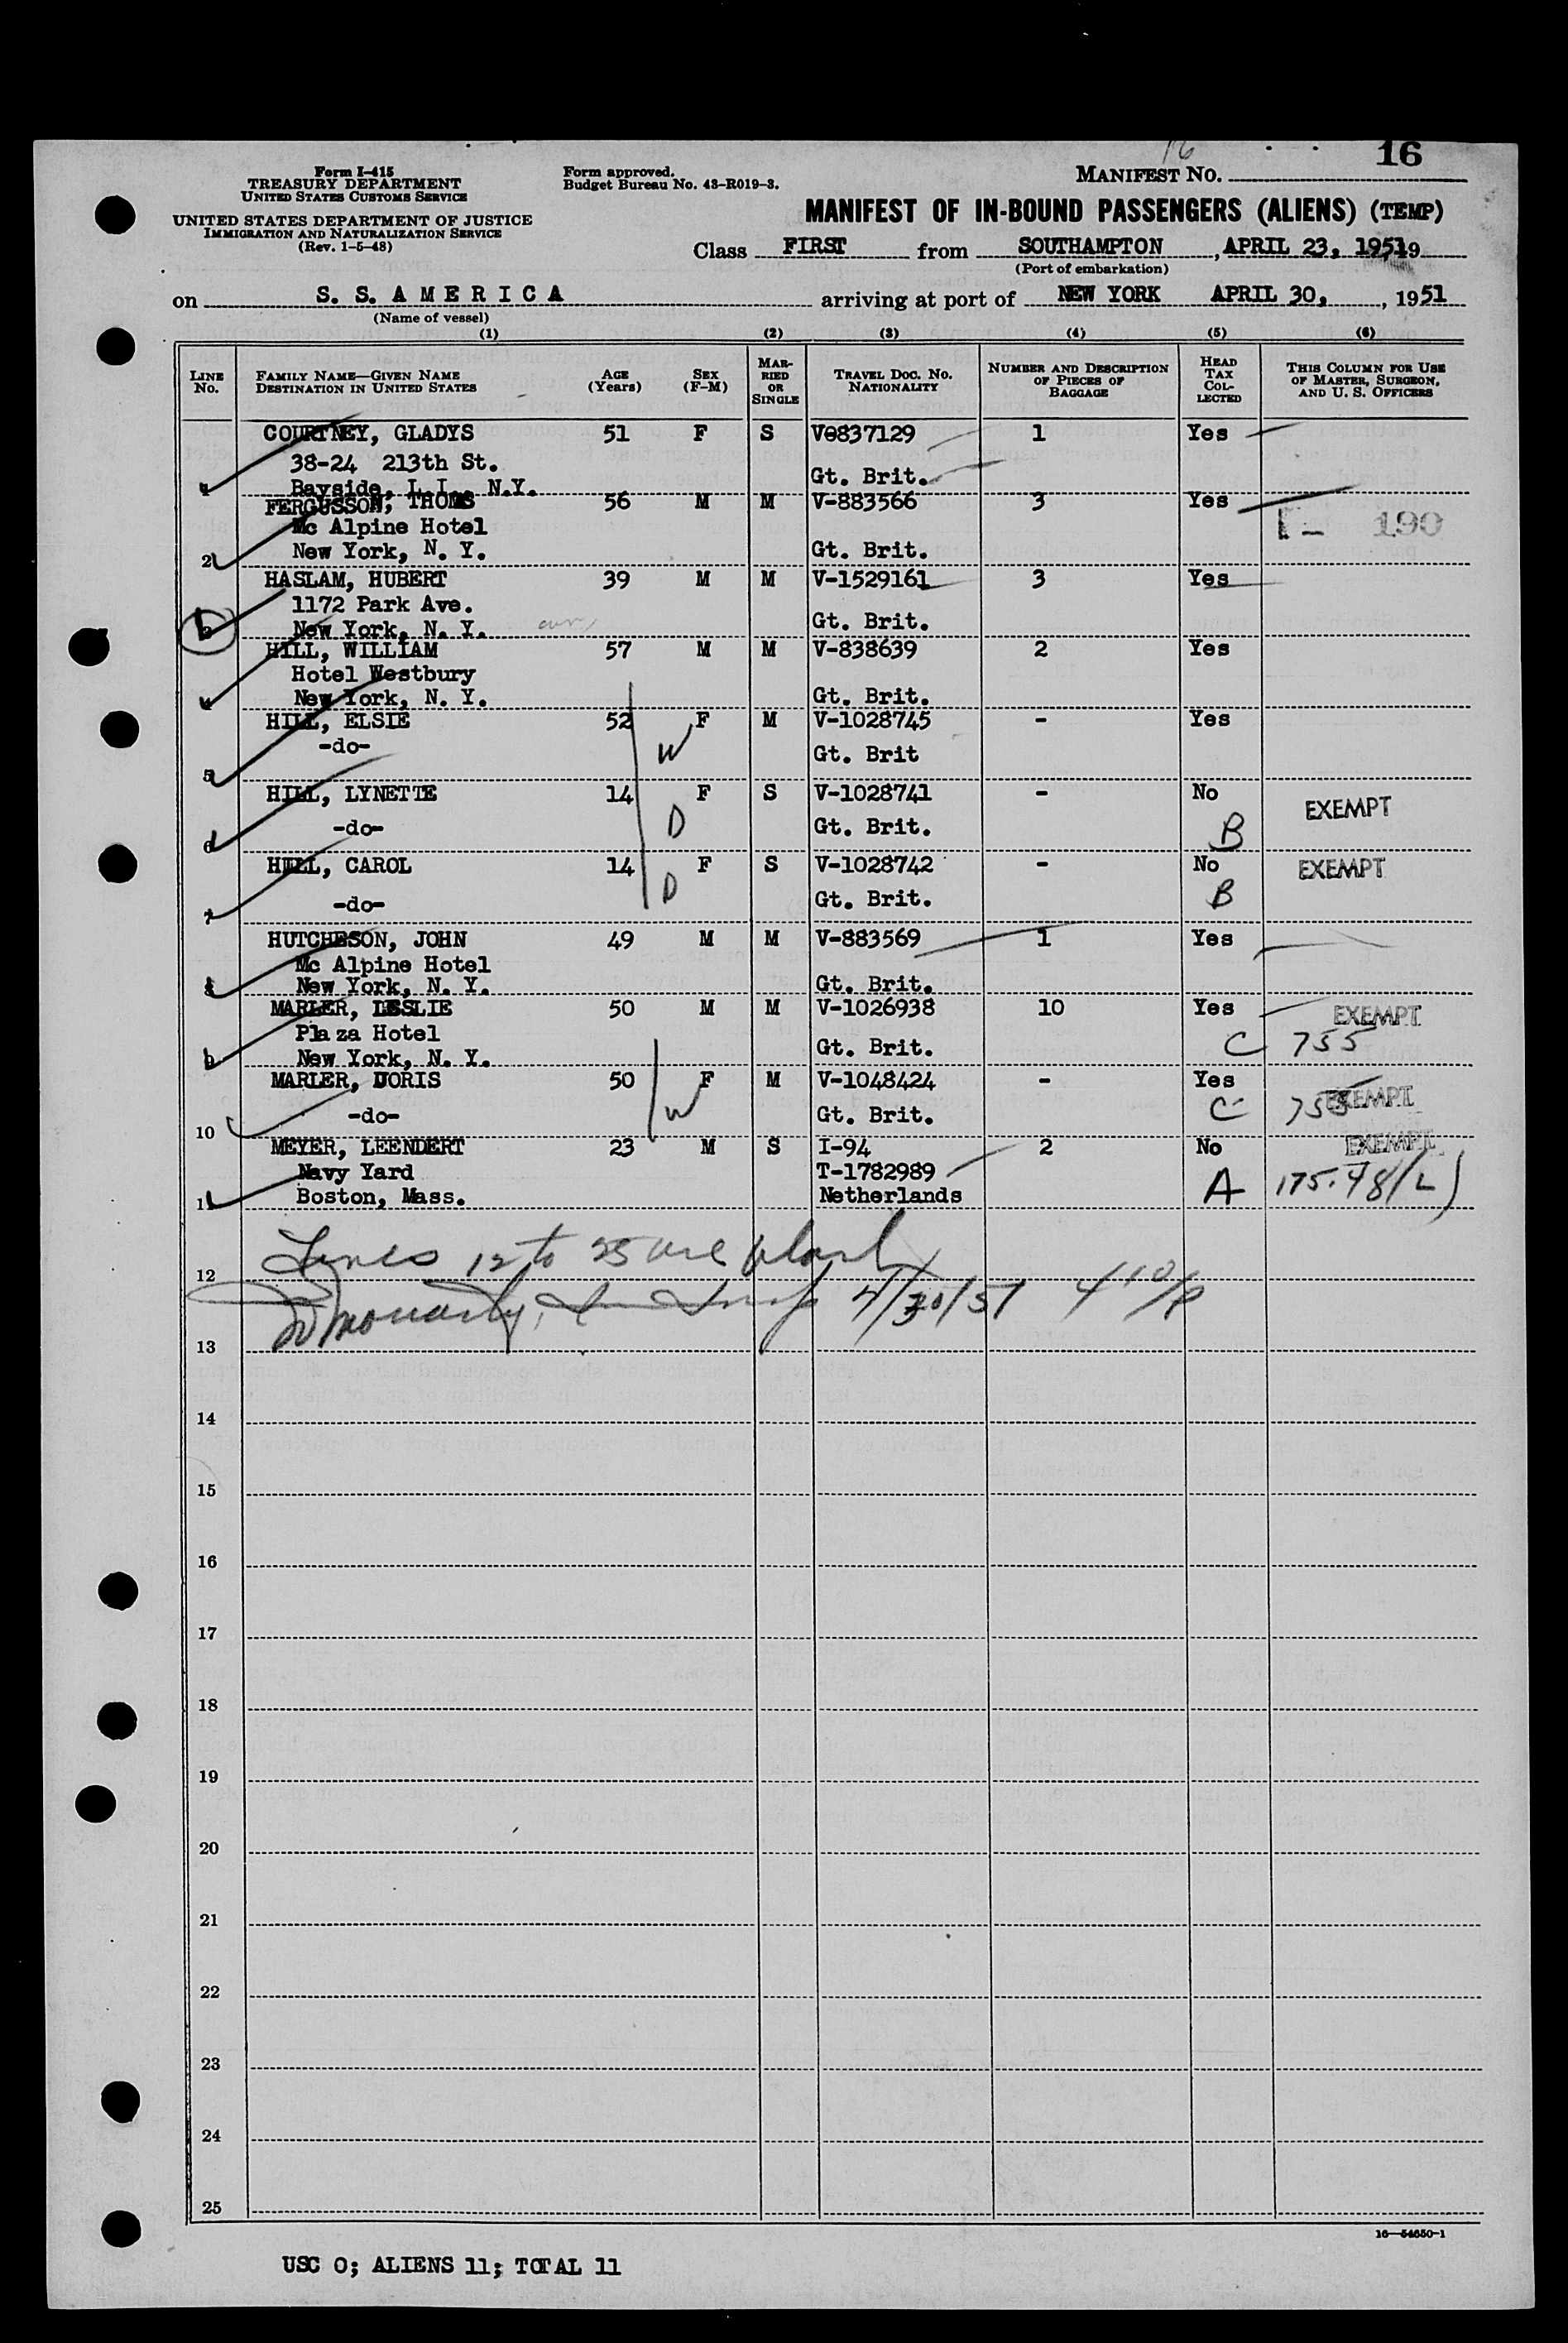 16
Form I-415
TREASURY DEPARTMENT
UNITED STATES CUSTOMS SERVICE
UNITED STATES DEPARTMENT OF JUSTICE
IMMIGRATION AND NATURALIZATION SERVICE
(Rev. 1-5-48)
Form approved.
Budget Bureau No. 43-R019-3.
16
MANIFEST NO.
MANIFEST OF IN-BOUND PASSENGERS (ALIENS) (TEMP)
Class FIRST from SOUTHAMPTON, APRIL 23, 195119
(Port of embarkation)
on S. S. A M E R I C A arriving at port of NEW YORK APRIL 30, , 1951
(Name of vessel)
(1) (2) (3) (4) (5) (6)
LINE NO. FAMILY NAME—GIVEN NAME DESTINATION IN UNITED STATES AGE (Years) SEX (F-M) MARRIED OR SINGLE TRAVEL DOC. NO. NATIONALITY NUMBER AND DESCRIPTION OF PIECES OF BAGGAGE HEAD TAX COLLECTED THIS COLUMN FOR USE OF MASTER, SURGEON, AND U. S. OFFICERS
COURTNEY, GLADYS 51 F S V0837129 1 Yes
38-24 213th St.
Gt. Brit.
Bayside, L.I., N.Y.
FERGUSSON, THOMS 56 M M V-883566 3 Yes
Mc Alpine Hotel 190
2 New York, N. Y. Gt. Brit.
HASLAM, HUBERT 39 M M V-1529161 3 Yes
1172 Park Ave.
New York, N. Y. Gt. Brit.
HILL, WILLIAM 57 M M V-838639 2 Yes
Hotel Westbury
4 New York, N. Y. Gt. Brit.
HILL, ELSIE 52 F M V-1028745 - Yes
-do- W Gt. Brit
5
HILL, LYNETTE 14 F S V-1028741 - No EXEMPT
6 -do- D Gt. Brit. B
HILL, CAROL 14 F S V-1028742 - No EXEMPT
7 -do- D Gt. Brit. B
HUTCHESON, JOHN 49 M M V-883569 1 Yes
Mc Alpine Hotel
8 New York, N. Y. Gt. Brit.
MARLER, LESLIE 50 M M V-1026938 10 Yes EXEMPT
Plaza Hotel
9 New York, N. Y. Gt. Brit. C 755
MARLER, DORIS 50 F M V-1048424 - Yes EXEMPT
10 -do- W Gt. Brit. C 755
MEYER, LEENDERT 23 M S I-94 2 No EXEMPT
Navy Yard T-1782989
11 Boston, Mass. Netherlands A 175.48(L)
Lines 12 to 25 are blank
12
4/30/51
13
14
15
16
17
18
19
20
21
22
23
24
25
16—54650-1
USC 0; ALIENS 11; TOTAL 11